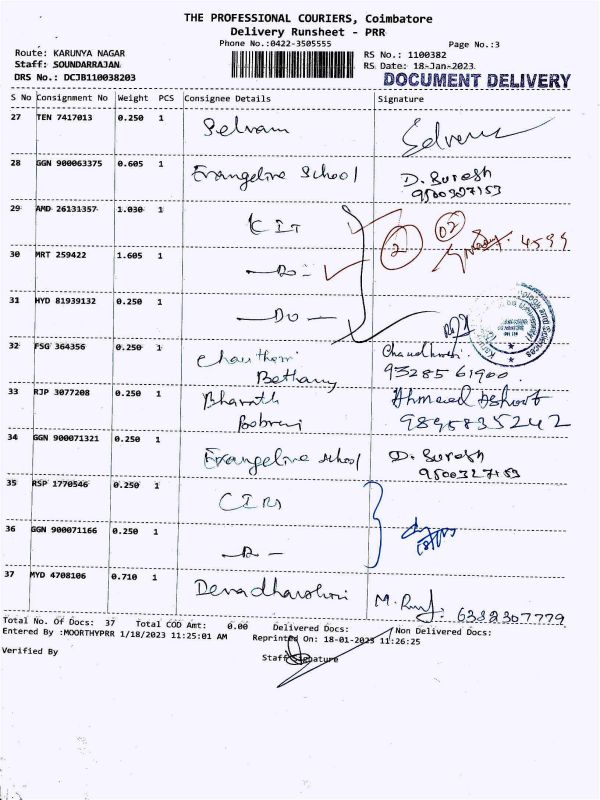 THE PROFESSIONAL COURIERS, Coimbatore
Delivery Runsheet - PRR
Phone No.:0422-3505555
Page No.:3
Route: KARUNYA NAGAR
RS No.: 1100382
Staff: SOUNDARRAJAN
RS Date: 18-Jan-2023
DRS No.: DCJB110038203
DOCUMENT DELIVERY
S No Consignment No Weight PCS Consignee Details Signature
27 TEN 7417013 0.250 1 Selvam Selvam
28 GGN 900063375 0.605 1 Evangeline School D. Suresh
9500327153
29 AMD 26131357 1.030 1 CIT 2 02
4599
30 MRT 259422 1.605 1 —Do—
31 HYD 81939132 0.250 1 —Do—
32 FSG 364356 0.250 1
Bethany 93285 61900
33 RJP 3077208 0.250 1 Bharath Ahmed Ashoot
9895835242
34 GGN 900071321 0.250 1 Evangeline school D. Suresh
9500327153
35 RSP 1770546 0.250 1
36 GGN 900071166 0.250 1
37 MYD 4708106 0.710 1 Devadharshini M. 6382307779
Total No. Of Docs: 37 Total COD Amt: 0.00 Delivered Docs: Non Delivered Docs:
Entered By :MOORTHYPRR 1/18/2023 11:25:01 AM Reprinted On: 18-01-2023 11:26:25
Verified By
Staff Signature